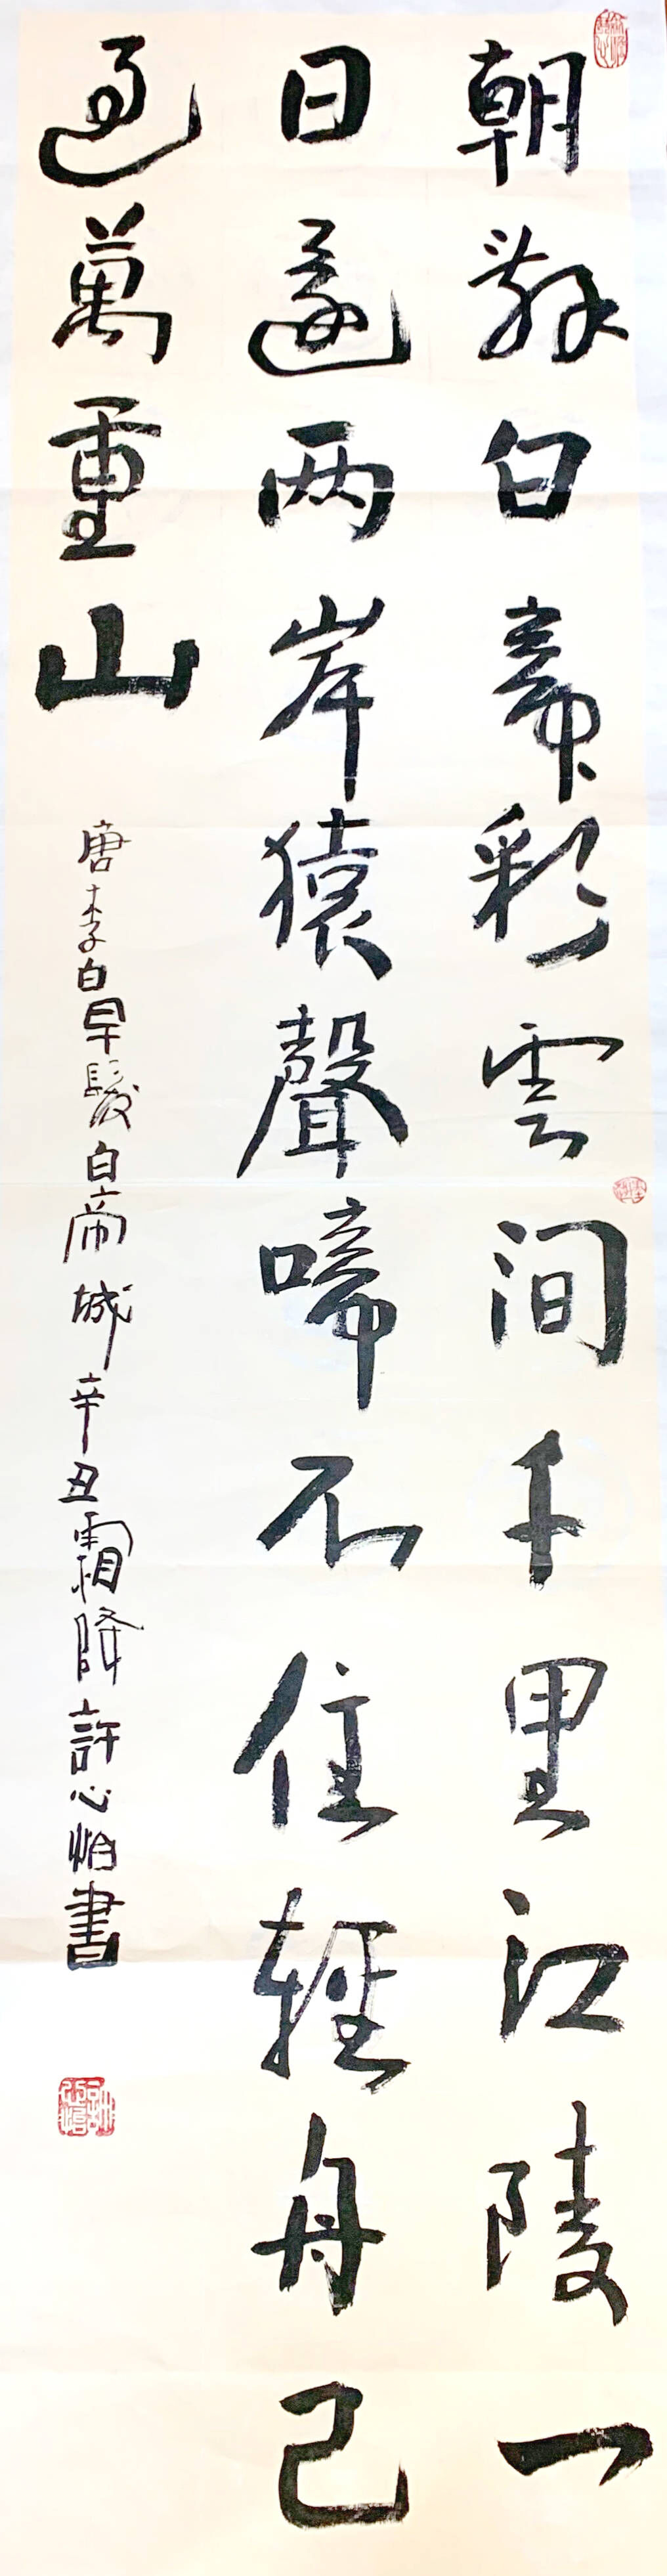 朝辞白帝彩雲间千里江陵一
日還两岸猿聲啼不住輕舟已
過萬重山
唐李白早髮白帝城辛丑霜降許心怡書